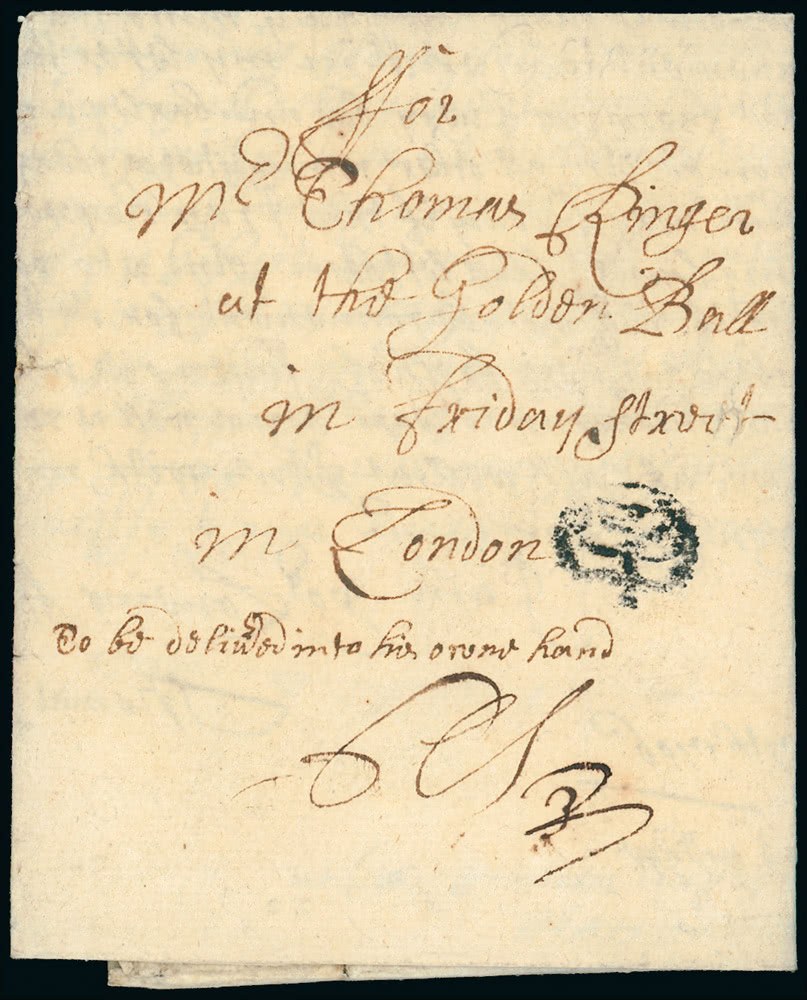 ffor
Mr Thomas Ringer
at the Golden Ball
in Friday street
in London
To be deliuered into his owne hand